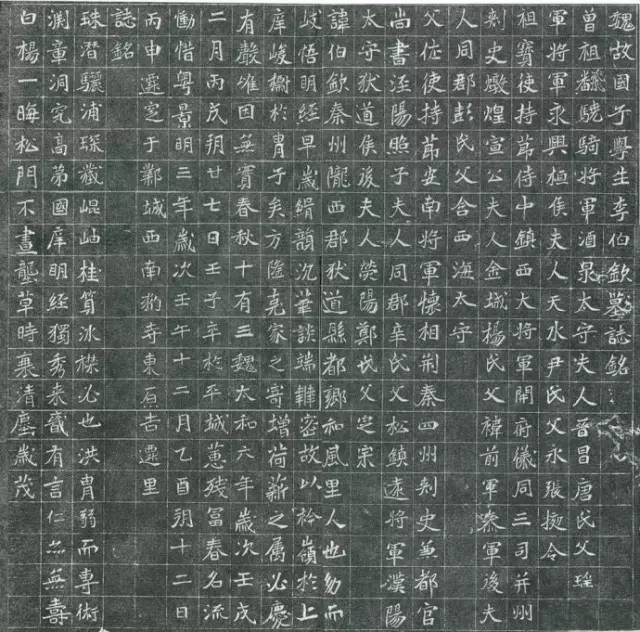 魏故國子學生李伯欽墓誌銘
曾祖翻驍騎將軍酒泉太守夫人晉昌唐氏父瑤
軍將軍永興桓侯夫人天水尹氏父永張掖令
祖寶使持節侍中鎮西大將軍開府儀同三司并州
刺史燉煌宣公夫人金城楊氏父禕前軍參軍後夫
人同郡彭氏父含西海太守
父佐使持節安南將軍懷相荊秦四州刺史兼都官
尚書涇陽照子夫人同郡辛氏父松鎮遠將軍漢陽
太守狄道侯後夫人滎陽鄭氏父定宗
諱伯欽秦州隴西郡狄道縣都鄉和風里人也幼而
岐悟明經早歲緝韻沉華談端雜密故以衿嶺於上
庠峻於冑子矣方隆克家之寄增荷薪之屬必慶
有聲唯回無實春秋十有三魏太和六年歲次壬戌
二月丙戌朔廿七日壬子卒於平城蕙殘冨春名流
慟惜粵景明三年歲次壬午十二月乙酉朔十二日
丙申遷窆于鄴城西南豹寺東原吉遷里
誌銘
珠潛驪浦琛藏崐岫桂筭冰襟必也洪胄弱而專術
渊章洞究高第國庠明經獨秀未有言仁亦無壽
白楊一晦松門不晝壟草時衰清塵歲茂